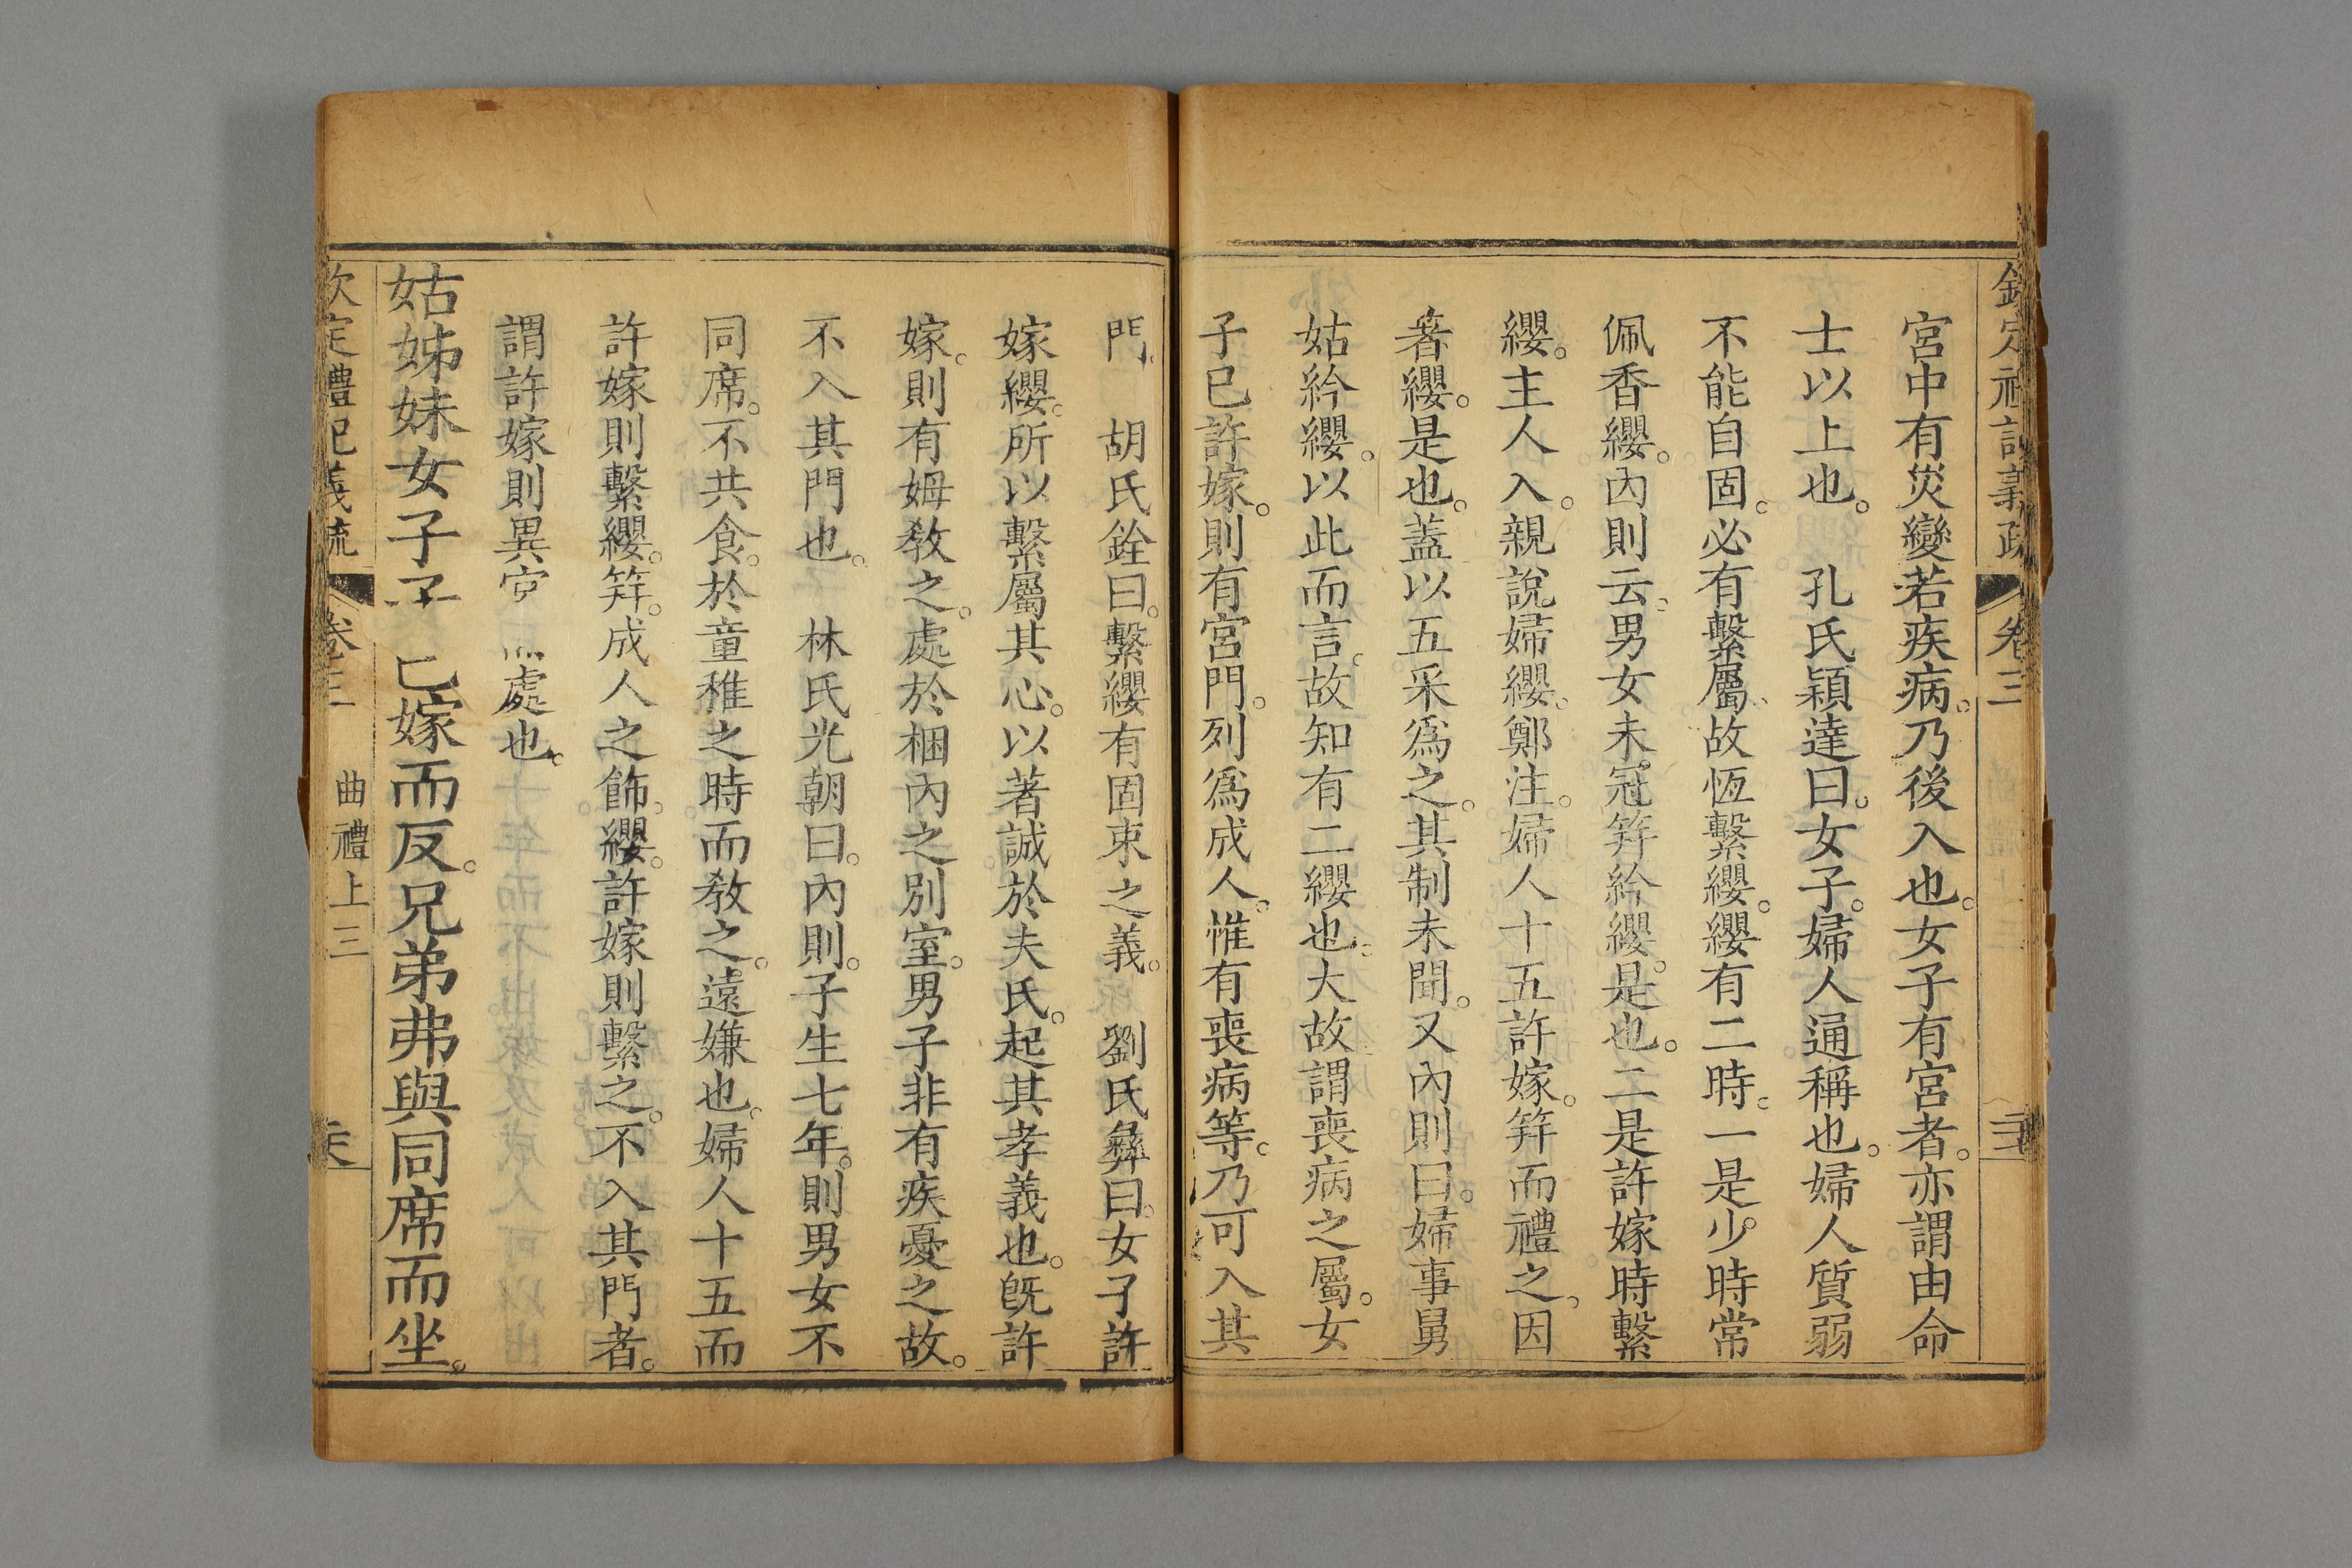 宮中有災變若疾病。乃後入也。女子有宮者。亦謂由命
士以上也。　孔氏穎達曰。女子。婦人通稱也。婦人質弱
不能自固。必有繫屬。故恆繫纓。纓有二時。一是少時常
佩香纓。內則云。男女未冠笄紟纓。是也。二是許嫁時繫
纓。主人入。親說婦纓。鄭注。婦人十五許嫁。笄而禮之。因
著纓。是也。蓋以五采爲之。其制未聞。又內則曰。婦事舅
姑紟纓。以此而言。故知有二纓也。大故謂喪病之屬。女
子已許嫁。則有宮門。列爲成人。惟有喪病等。乃可入其
門。　胡氏銓曰。繫纓有固束之義。　劉氏彝曰。女子許
嫁纓。所以繫屬其心。以著誠於夫氏。起其孝義也。旣許
嫁。則有姆敎之。處於梱內之別室。男子非有疾憂之故。
不入其門也。　林氏光朝曰。內則。子生七年。則男女不
同席。不共食。於童稚之時而敎之。遠嫌也。婦人十五而
許嫁則繫纓。笄。成人之飾。纓。許嫁則繫之。不入其門者。
謂許嫁則異宮處也。
姑姊妹女子子已嫁而反。兄弟弗與同席而坐。
欽定禮記義疏　卷三　曲禮上三